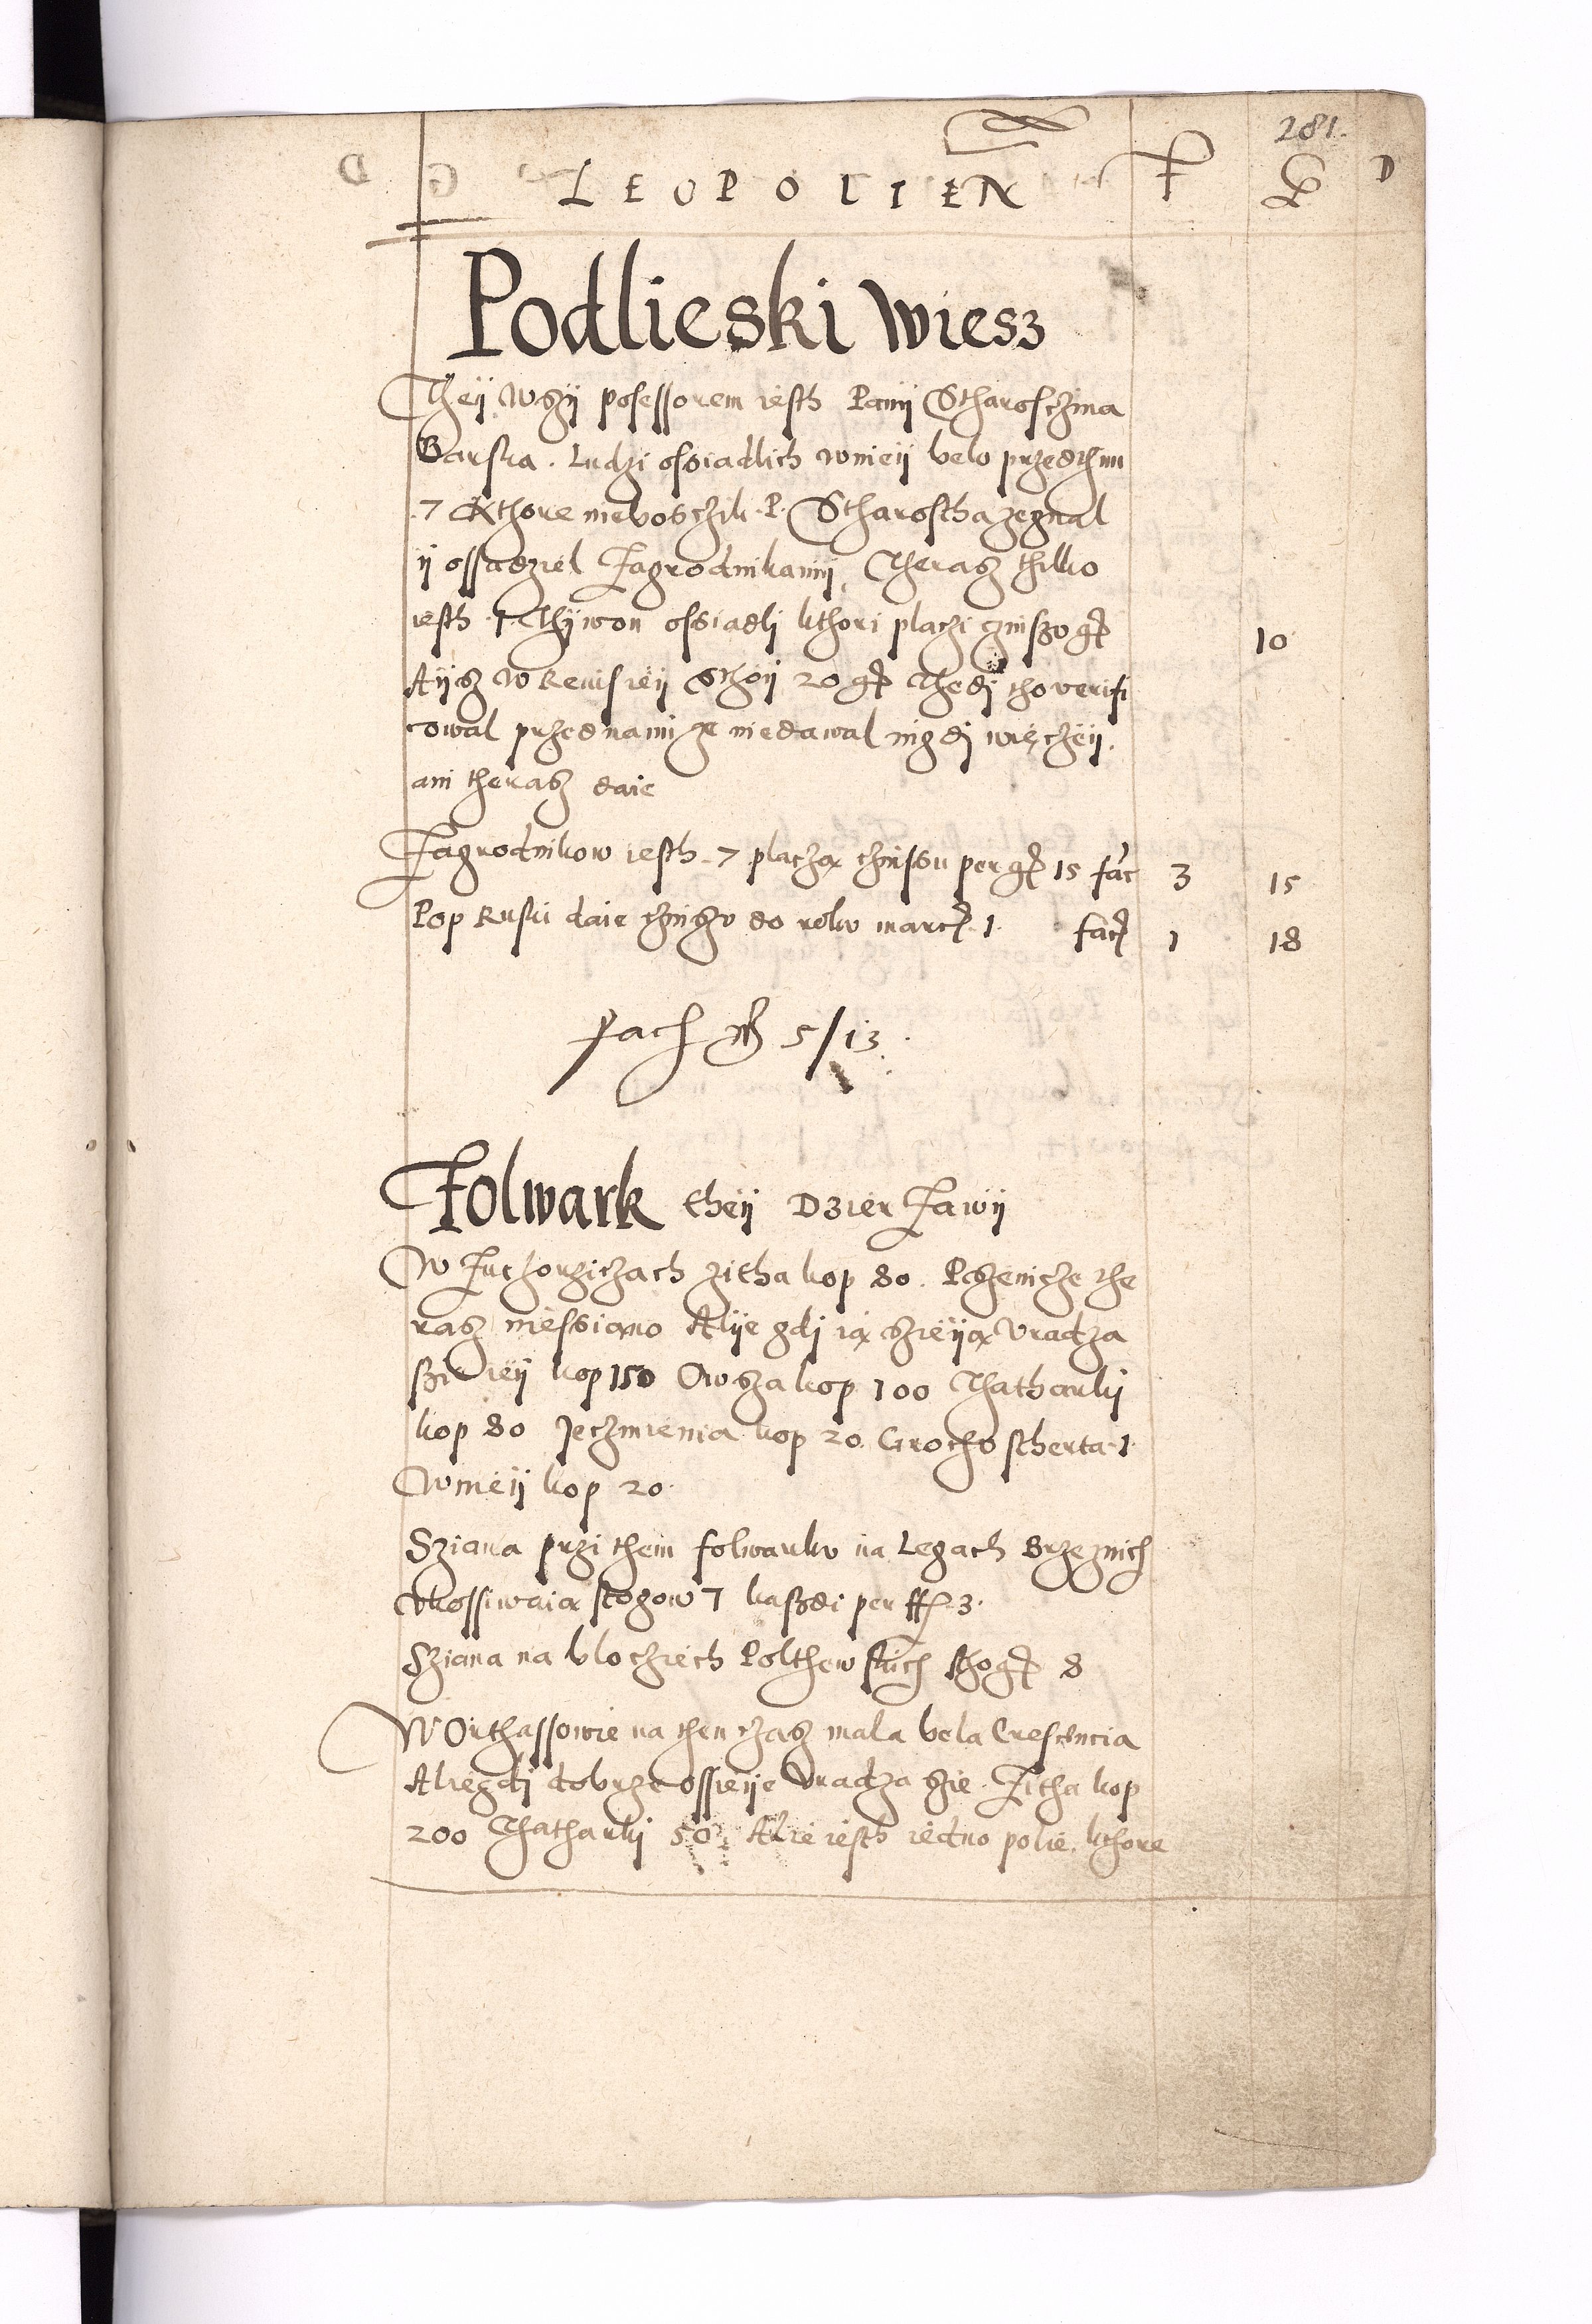 281.
LEOPOLIEN F G D
Podlieski Wiesz
Theÿ Wsÿ possessorem iesth Panÿ Stharosczina
Barska. Ludzi ossiadlich wnieÿ belo przedthim
7 Kthore nieboschik P. Stharostha zegnal
ÿ ossadziel Zagrodnikami, Theraz thilko
iesth 1 Thÿwon ossiadlj kthori placzi czinszo gr 10
Aÿsz W Rewisieÿ Sthoÿ 20 gr Thedj tho verifi
cowal przednami ze niedawal nigdj więczeÿ.
ani therasz daie
Zagrodnikow iesth 7 placzą czinssu per gr 15 fac 3 15
Pop Ruski daie czinszv do rokv marc 1. fac 1 18
fach 5/13.
Folwark theÿ Dzierzawÿ
W zitha kop 80. Pszenicze the
rasz niessiano Alÿe gdj ią szieÿą Vradza
szie ieÿ kop 150 Owsza kop 100 Thatharkj
kop 80 Jeczmienia kop 20 Grocho stherta 1.
Wnieÿ kop 20.
Sziana przithem folwarkv na Legach Brzeznich
vkossiwaią stogow 7 kaszdi per 3.
Sziana na blociech Polthewskich Stho 8
W Orthassowie na then czasz mala bela Crescencia
Aliegdj dobrze ossieÿe Vradza szie. Zitha kop
200 Thatharkj 50. Alie iesth iedno polie. kthore